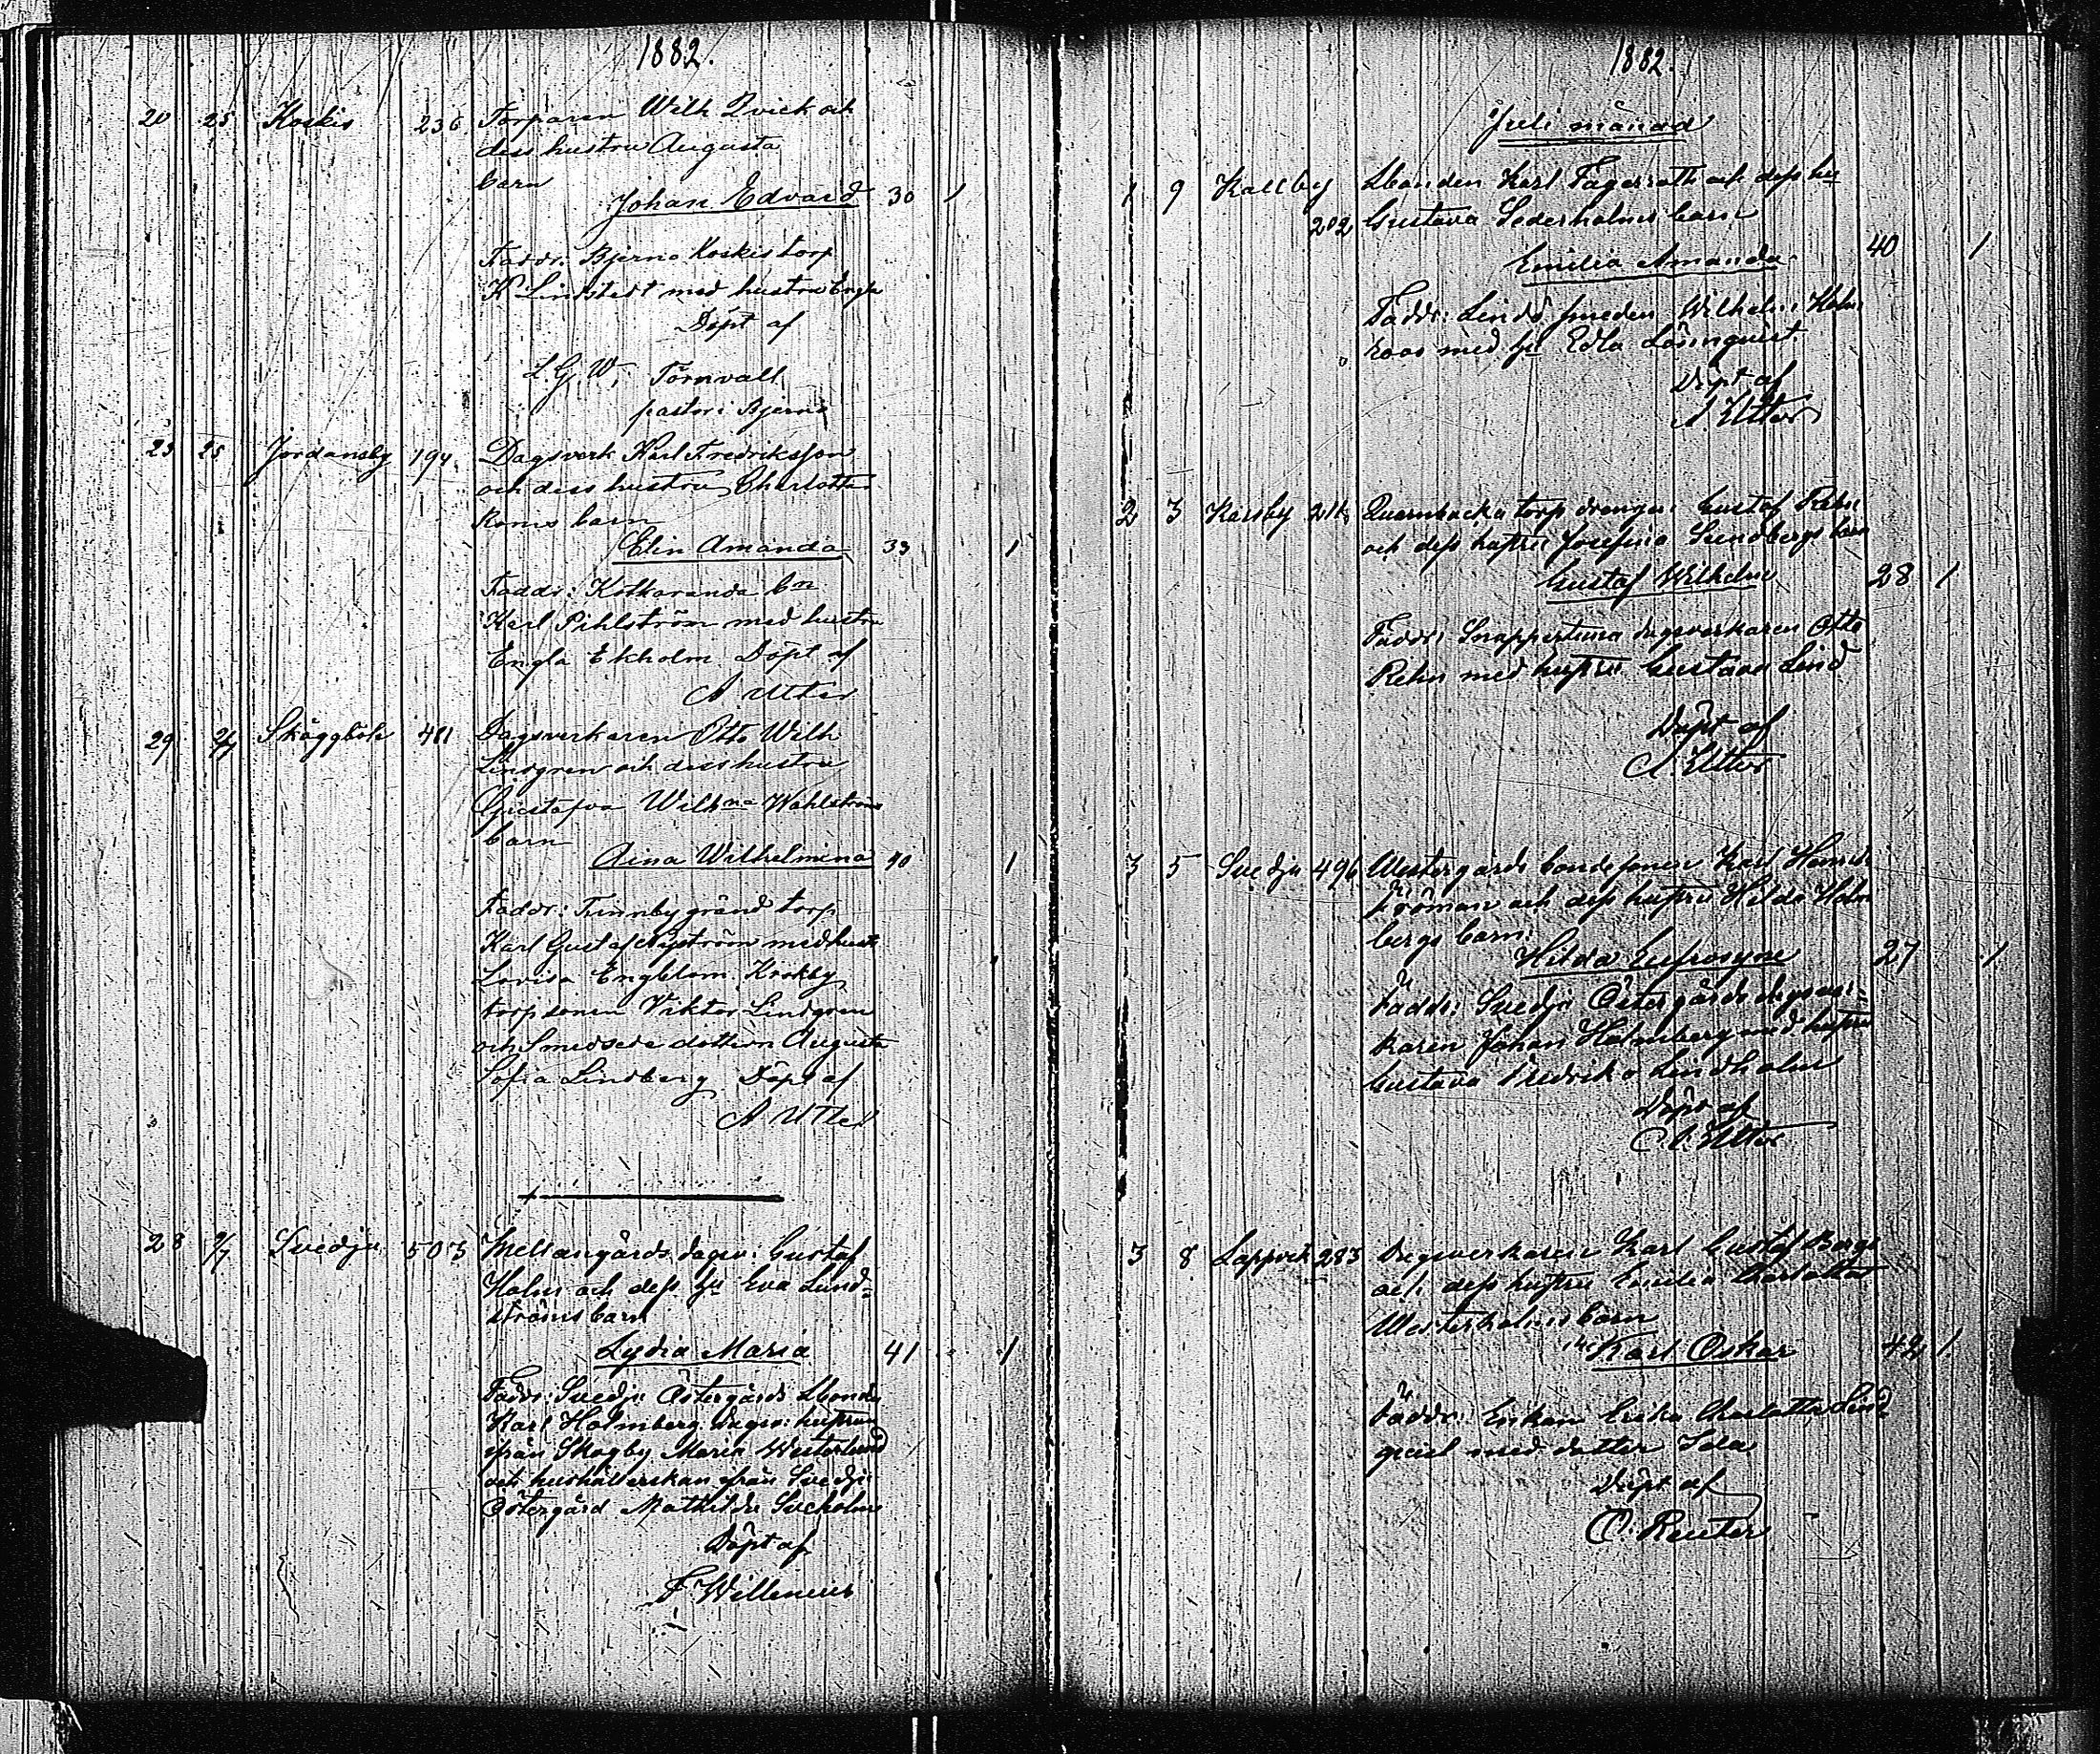 1882.
20 25 Koskis 236 Torparen Wilh Qvick och
dess hustru Augusta
barn
Johan Edvard 30 1
Faddr: Bjerno Koskis torp
K Lindstedt med hustru Engla
Döpt af
L. G. W. Törnvall
pastor i Bjerno
23 25 Jordansby 194 Dagsverk Karl Fredriksson
och dess hustru Charlotta
Roms barn
Elin Amanda 33 1
Faddr: Kotkaranda bn
Karl Pihlström med hustru
Engla Ekholm Döpt af
A Utter
29 2/7 Skäggböle 481 Dagsverkaren Otto Wilh
Lindgren och dess hustru
Gustafva Wilhna Wahlströms
barn
Aina Wilhelmina 40 1
Faddr: Finnby gränd torp
Karl Gustaf Nyström med hust
Lovisa Engblom, Krokby
torpsonen Viktor Lindgren
och Smedsede dottern Augusta
Sofia Lindberg Döpt af
A Utter
28 9/7 Svedja 503 Mellangårds dagsv: Gustaf
Holm och dess hu Eva Lund-
ströms barn
Lydia Maria 41 1
Faddr: Svedja Östergårds Lbonden
Karl Holmberg, dagsv: hustrun
från Skogby Maria Westerlund
och hushållerskan från Svedja
Östergård Mathilda
Döpt af
F Willenius
1882.
Juli månad
1 9 Kallby Lbonden Karl Fagerroth och dess hu
202 Gustava Sederholms barn
Emilia Amanda 40 1
Faddr: Lindö smeden Wilhelm Holm
roos med hu Edla Lönnqvist.
Döpt af
A. Utter
2 3 Karsby Quarnbacka torp drengen Gustaf Rehn
och dess hustru Josefina Sundbergs barn
Gustaf Wilhelm 28 1
Faddr: Snappertuna dagsverkaren Otto
Rehn med hustru Gustava Lind
Döpt af
A. Utter
3 5 Svedja 496 Westergårds bondesonen Karl Henrik
Fröman och dess hustru Hilda Holm
bergs barn:
Hilda Eufrosyne 27 1
Faddr: Svedja Östergårds dagsver-
karen Johan Holmberg med hustru
Gustava Fredrika Lindholm
Döpt af
A. Utter
3 8 Lappvik 283 Dagsverkaren Karl Gustaf Berg
och dess hustru Emilia Charlotta
Westerholms barn
Karl Oskar 42 1
Faddr: Enkan Ericka Charlotta Lind-
qvist med dotter Ida
Döpt af
O. Reuter